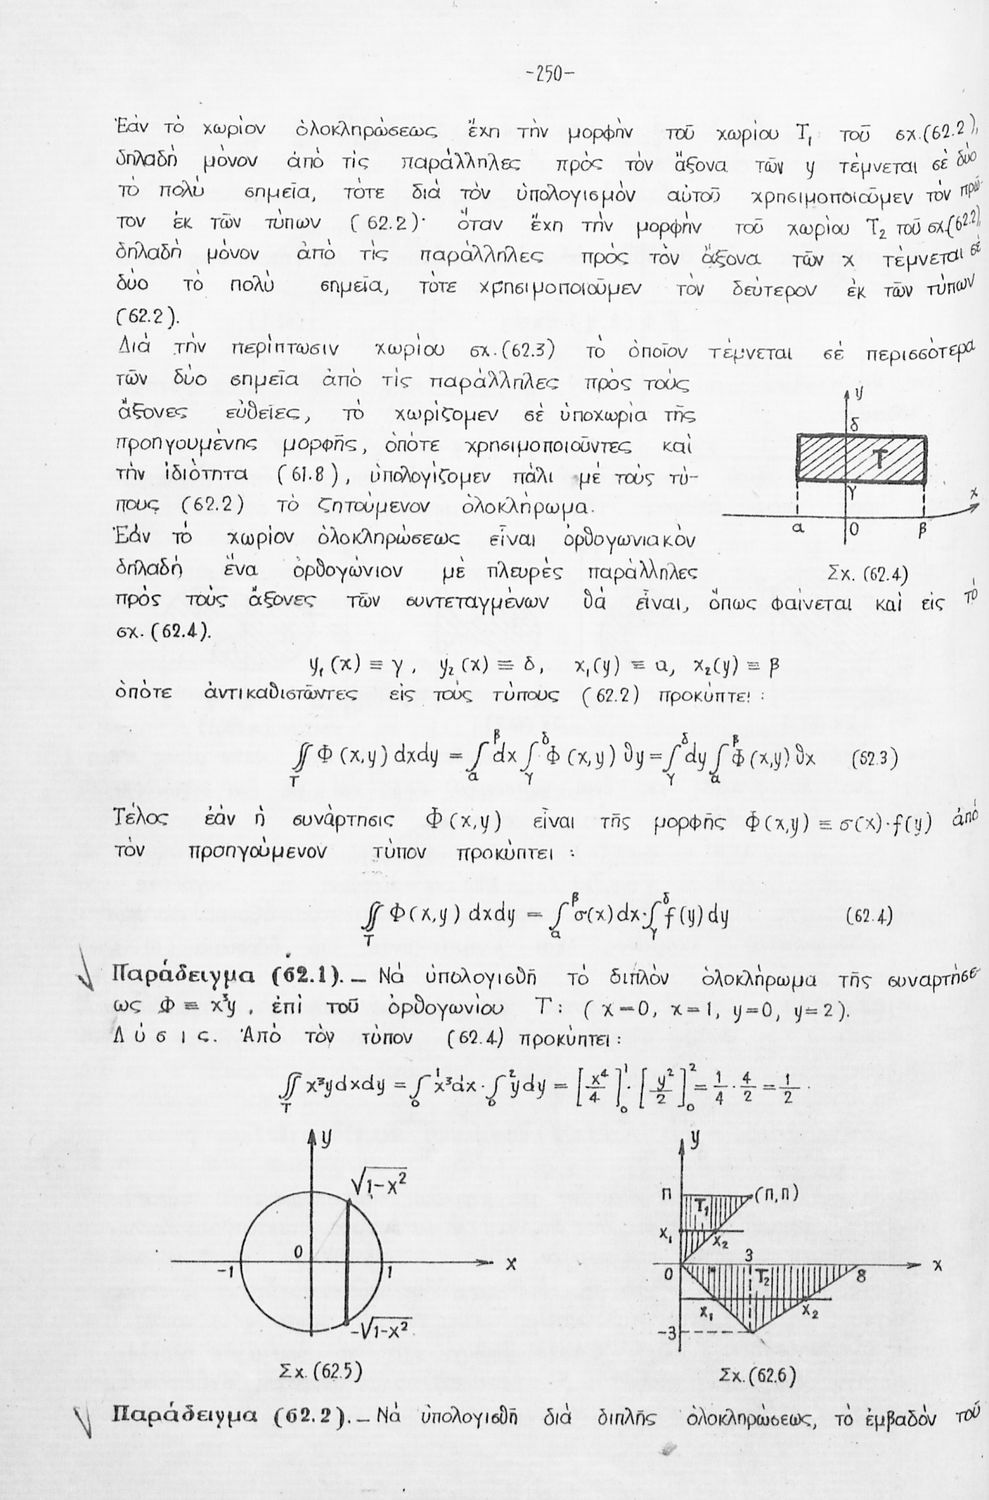 -250-
Ἐάν τό χωρίον ὁλοκληρώσεως ἔχη τήν μορφήν τοῦ χωρίου Τ₁ τοῦ σχ.(62.2),
δηλαδή μόνον ἀπό τίς παράλληλες πρός τόν ἄξονα τῶν y τέμνεται σέ δύο
τό πολύ σημεῖα, τότε διά τόν ὑπολογισμόν αὐτοῦ χρησιμοποιοῦμεν τόν πρῶ-
τον ἐκ τῶν τύπων (62.2)· ὅταν ἔχη τήν μορφήν τοῦ χωρίου Τ₂ τοῦ σχ.(62.2),
δηλαδή μόνον ἀπό τίς παράλληλες πρός τόν ἄξονα τῶν x τέμνεται σέ
δύο τό πολύ σημεῖα, τότε χρησιμοποιοῦμεν τόν δεύτερον ἐκ τῶν τύπων
(62.2).
Διά τήν περίπτωσιν χωρίου σχ.(62.3) τό ὁποῖον τέμνεται σέ περισσότερα
τῶν δύο σημεῖα ἀπό τίς παράλληλες πρός τούς
ἄξονες εὐθεῖες, τό χωρίζομεν σέ ὑποχωρία τῆς
προηγουμένης μορφῆς, ὁπότε χρησιμοποιοῦντες καί
τήν ἰδιότητα (61.8), ὑπολογίζομεν πάλι μέ τούς τύ-
πους (62.2) τό ζητούμενον ὁλοκλήρωμα.
Ἐάν τό χωρίον ὁλοκληρώσεως εἶναι ὀρθογωνιακόν
δηλαδή ἕνα ὀρθογώνιον μέ πλευρές παράλληλες
πρός τούς ἄξονες τῶν συντεταγμένων θά εἶναι, ὅπως φαίνεται καί εἰς τό
σχ.(62.4).
y
δ
T
γ
x
α
0
β
Σχ. (62.4)
y₁(x) ≡ γ, y₂(x) ≡ δ, x₁(y) ≡ α, x₂(y) ≡ β
ὁπότε ἀντικαθιστῶντες εἰς τούς τύπους (62.2) προκύπτει:
∬_T Φ(x,y)dxdy = ∫_α^β dx ∫_γ^δ Φ(x,y)∂y = ∫_γ^δ dy ∫_α^β Φ(x,y)∂x (62.3)
Τέλος ἐάν ἡ συνάρτησις Φ(x,y) εἶναι τῆς μορφῆς Φ(x,y) ≡ σ(x)·f(y) ἀπό
τόν προηγούμενον τύπον προκύπτει :
∬_T Φ(x,y) dxdy = ∫_α^β σ(x)dx·∫_γ^δ f(y)dy (62.4)
Παράδειγμα (62.1).– Νά ὑπολογισθῆ τό διπλόν ὁλοκλήρωμα τῆς συναρτήσε-
ως Φ ≡ x³y, ἐπί τοῦ ὀρθογωνίου Τ: (x=0, x=1, y=0, y=2).
Λύσις. Ἀπό τόν τύπον (62.4) προκύπτει:
∬_T x³ydxdy = ∫_0^1 x³dx·∫_0^2 ydy = [x⁴/4]_0^1·[y²/2]_0^2 = 1/4·4/2 = 1/2.
y
√1-x²
0
-1
1
x
-√1-x²
Σχ.(62.5)
y
π
(π,π)
T₁
x₁
x₂
3
0
T₂
8
x
x₁
x₂
-3
Σχ.(62.6)
Παράδειγμα (62.2).– Νά ὑπολογισθῆ διά διπλῆς ὁλοκληρώσεως, τό ἐμβαδόν τοῦ